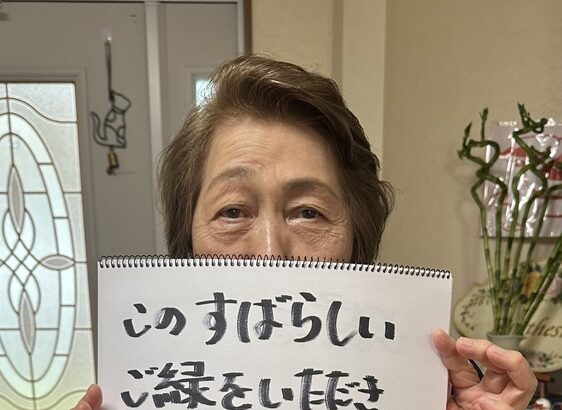 このすばらしい
ご縁をいただき